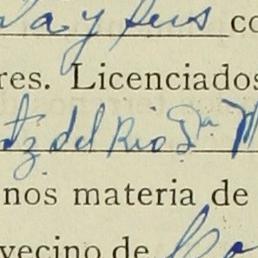 a y seis co
res. Licenciados
tz del Rio Dn M
nos materia de
vecino de Lo